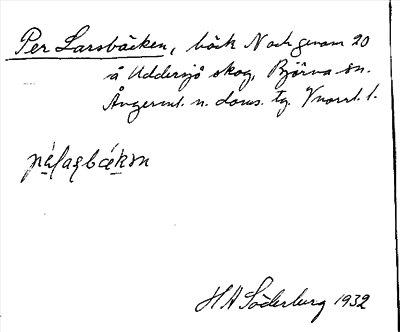 Per Larsbäcken, bäck N och genom 20
å Uddersjö skog, Björna sn.
Ångerml. n. doms. tg. Vnorrl. l.
H A Söderberg 1932